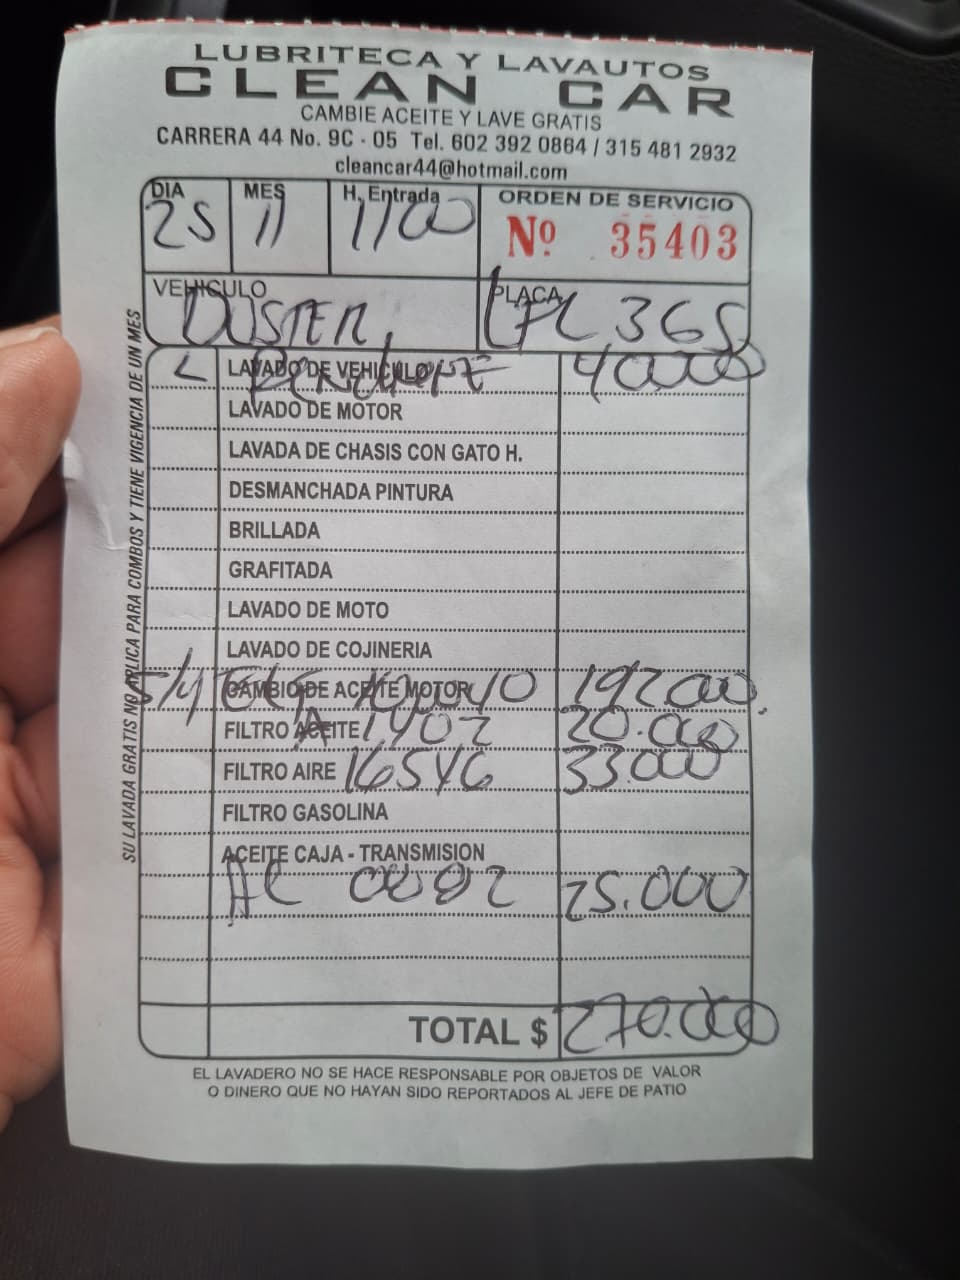 LUBRITECA Y LAVAUTOS
CLEAN CAR
CAMBIE ACEITE Y LAVE GRATIS
CARRERA 44 No. 9C - 05 Tel. 602 392 0864 / 315 481 2932
cleancar44@hotmail.com
DIA MES H. Entrada ORDEN DE SERVICIO
25 11 1100 Nº 35403
VEHICULO PLACA
DUSTER 365
LAVADO DE VEHICULO 40000
LAVADO DE MOTOR
LAVADA DE CHASIS CON GATO H.
DESMANCHADA PINTURA
BRILLADA
GRAFITADA
LAVADO DE MOTO
LAVADO DE COJINERIA
5/4 CAMBIO DE ACEITE MOTOR 192000
FILTRO ACEITE 1402 20.000
FILTRO AIRE 16546 33.000
FILTRO GASOLINA
ACEITE CAJA - TRANSMISION
AC 0882 25.000
TOTAL $ 270.000
EL LAVADERO NO SE HACE RESPONSABLE POR OBJETOS DE VALOR
O DINERO QUE NO HAYAN SIDO REPORTADOS AL JEFE DE PATIO
SU LAVADA GRATIS NO APLICA PARA COMBOS Y TIENE VIGENCIA DE UN MES